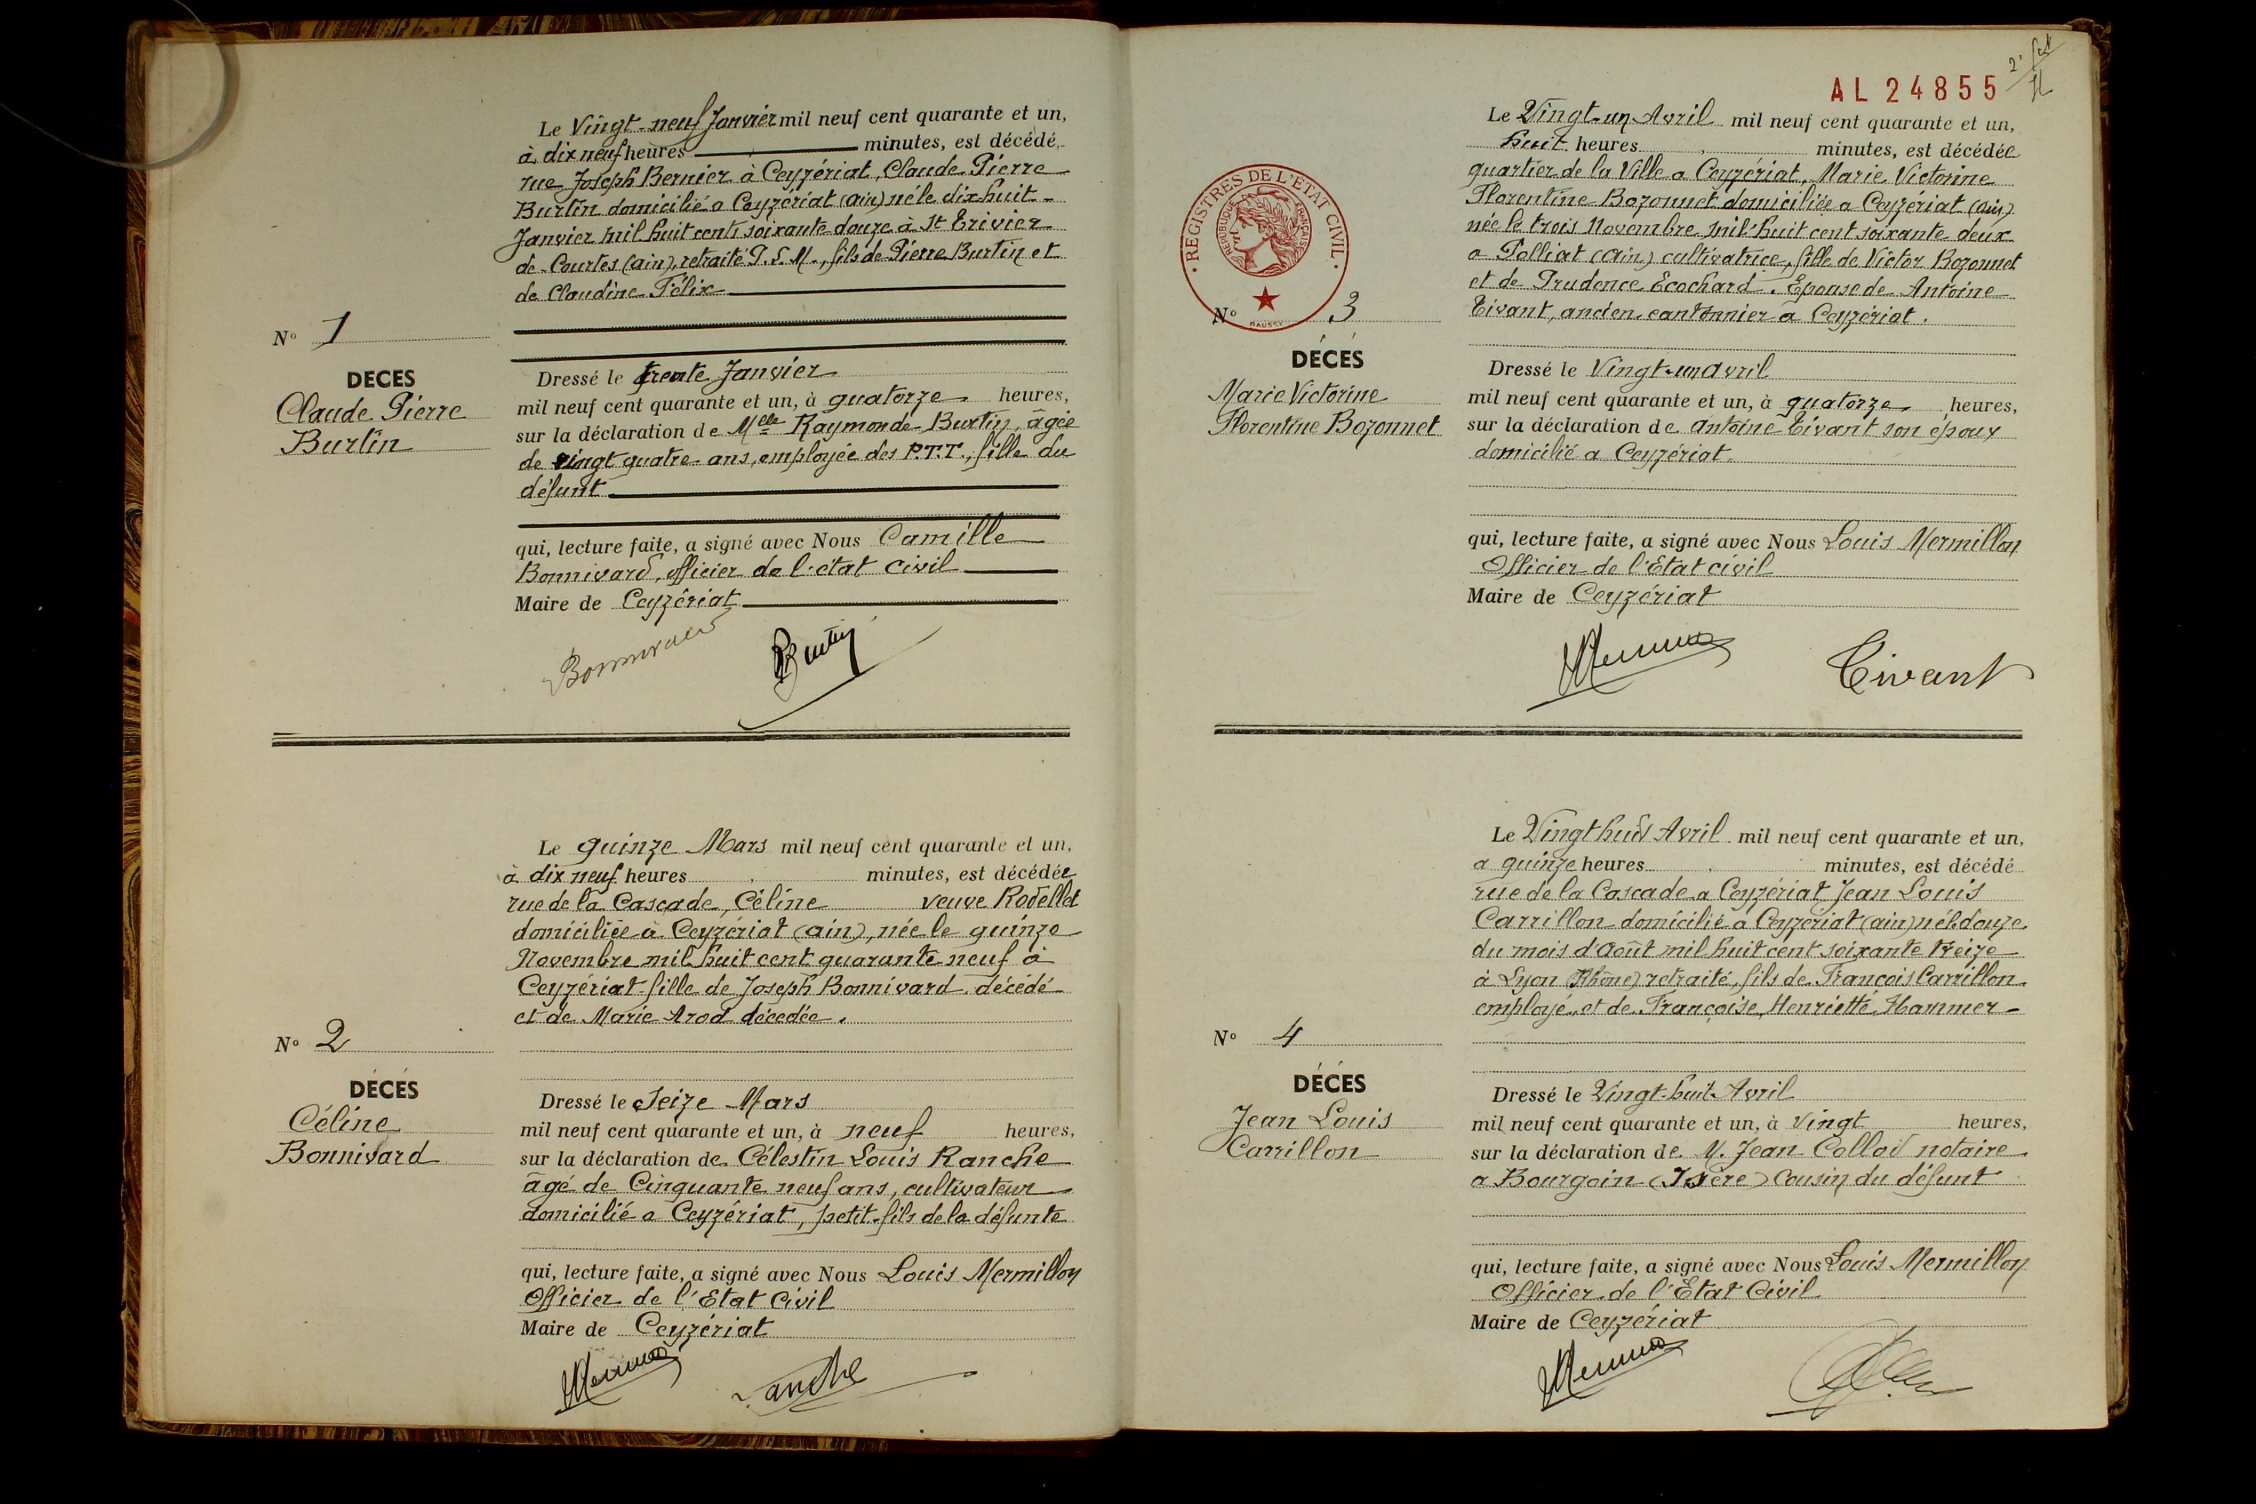 Le Vingt-neuf Janvier mil neuf cent quarante et un,
à dix neuf heures minutes, est décédé
rue Joseph Bernier à Ceyzériat, Claude Pierre
Burtin domicilié a Ceyzériat (ain) né le dix huit
Janvier mil huit cent soixante douze à St Trivier
de Courtes (ain), retraité P.L.M., fils de Pierre Burtin et
de Claudine Félix
No 1
DÉCÈS
Claude Pierre
Burtin
Dressé le trente Janvier
mil neuf cent quarante et un, à quatorze heures,
sur la déclaration de Melle Raymonde Burtin, âgée
de vingt quatre ans, employée des P.T.T., fille du
défunt
qui, lecture faite, a signé avec Nous Camille
Bonnivard, officier de l'état civil
Maire de Ceyzériat
Bonnivard
Burtin
Le quinze Mars mil neuf cent quarante et un,
à dix neuf heures minutes, est décédée
rue de la Cascade, Céline veuve Rodellet
domiciliée à Ceyzériat (ain), née le quinze
Novembre mil huit cent quarante neuf à
Ceyzériat fille de Joseph Bonnivard décédé
et de Marie Arod décedée.
No 2
DÉCÈS
Céline
Bonnivard
Dressé le Seize Mars
mil neuf cent quarante et un, à neuf heures,
sur la déclaration de Célestin Louis Ranche
âgé de Cinquante neuf ans, cultivateur
domicilié a Ceyzériat, petit-fils de la défunte
qui, lecture faite, a signé avec Nous Louis Mermillon
Officier de l'Etat Civil
Maire de Ceyzériat
Ranche
AL 24855
REGISTRES DE L'ÉTAT CIVIL
RÉPUBLIQUE FRANÇAISE
Le Vingt-un Avril mil neuf cent quarante et un,
huit heures minutes, est décédée
quartier de la Ville a Ceyzériat, Marie Victorine
Florentine Bozonnet domiciliée a Ceyzeriat (ain)
née le trois Novembre mil huit cent soixante deux
a Polliat (ain) cultivatrice, fille de Victor Bozonnet
et de Prudence Ecochard. Epouse de Antoine
Tivant, ancien cantonnier a Ceyzériat.
No 3
DÉCÈS
Marie Victorine
Florentine Bozonnet
Dressé le Vingt-un Avril
mil neuf cent quarante et un, à quatorze heures,
sur la déclaration de Antoine Tivant son époux
domicilié a Ceyzériat.
qui, lecture faite, a signé avec Nous Louis Mermillon
Officier de l'Etat civil
Maire de Ceyzériat
Tivant
Le Vingt huit Avril mil neuf cent quarante et un,
a quinze heures minutes, est décédé
rue de la Cascade a Ceyzériat Jean Louis
Carrillon domicilié a Ceyzeriat (ain) né le douze
du mois d'Août mil huit cent soixante treize
à Lyon (Rhône) retraité, fils de François Carrillon
employé et de Françoise Henriette Hammer
No 4
DÉCÈS
Jean Louis
Carrillon
Dressé le Vingt-huit Avril
mil neuf cent quarante et un, à vingt heures,
sur la déclaration de M. Jean Collod notaire
a Bourgoin (Isère) cousin du défunt
qui, lecture faite, a signé avec Nous Louis Mermillon
Officier de l'Etat Civil
Maire de Ceyzériat